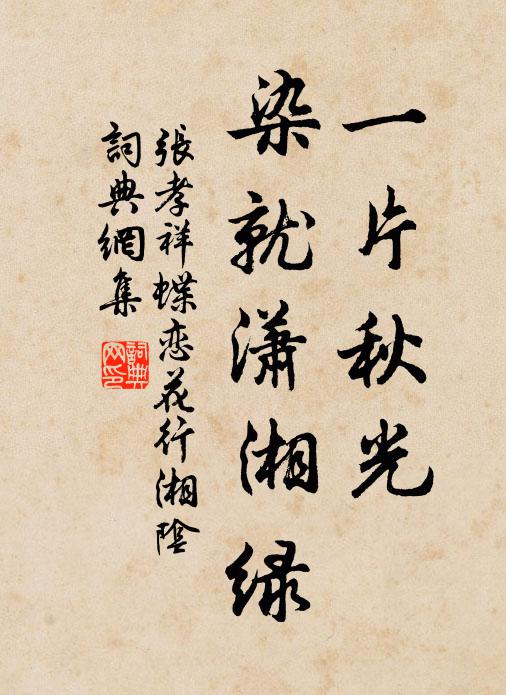 一片秋光
染就瀟湘綠
張孝祥蝶恋花行湘陰
詞典網集
詞典
网印